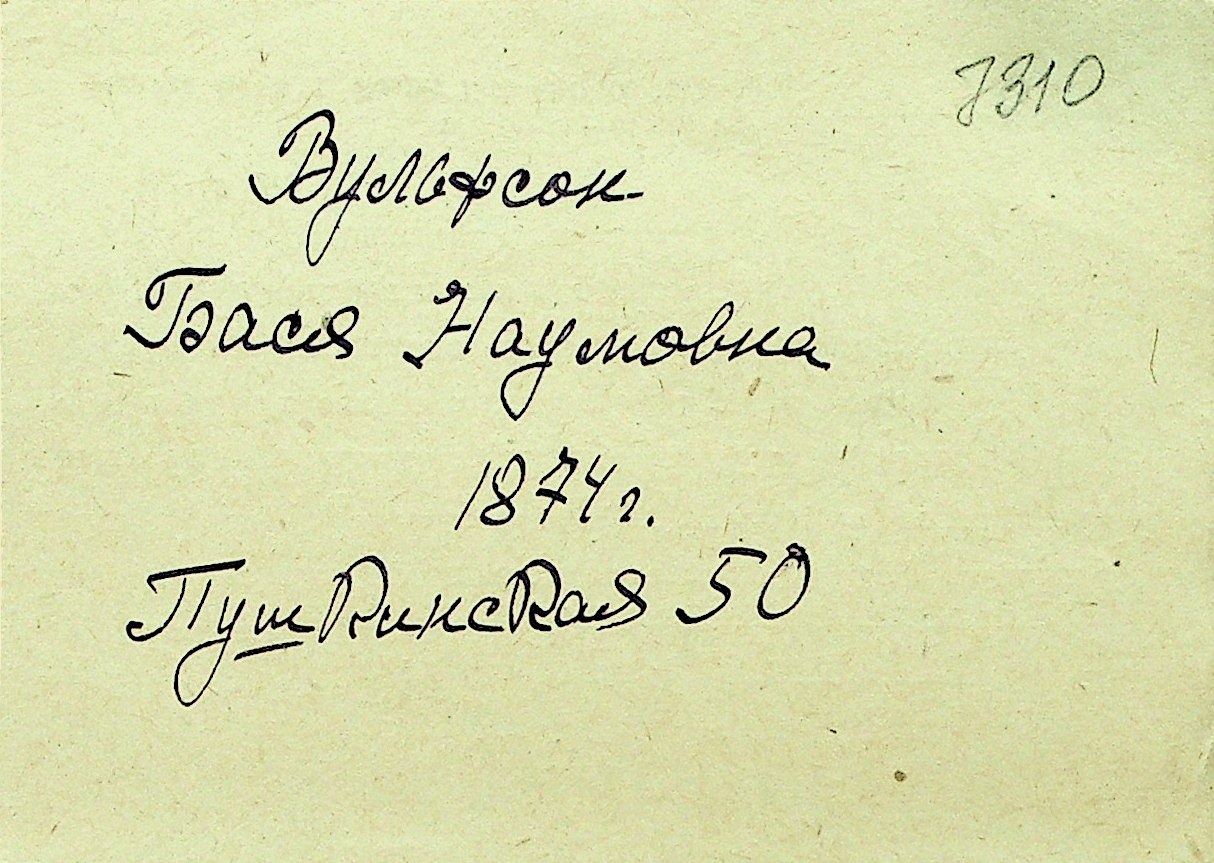 7310
Вульфсон
Бася Наумовна
1874 г.
Пушкинская 50